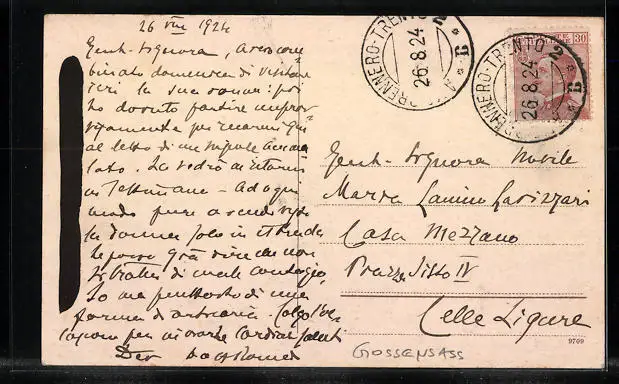 26 VIII 1924
Gent. Signora, avevo com=
binato domenica di visitare
ieri la sua : poi
ho dovuto partire improv=
visamente per recarmi qui
al letto di un nipote amma=
lato. La vedrò al ritorno
in settimana - Ad ogni
modo pure
la donna solo in
Le posso già dire che non
si tratta di male contagio=
so ma piuttosto di una
forma di - Colgo l'oc=
casione per inviarle cordiali saluti
Dev
BRENNERO-TRENTO 2
26.8.24
BRENNERO-TRENTO 2
26.8.24
30
Gent. Signora Nobile
Maria Gavizzari
Casa Mezzano
Piazza Sisto IV
Celle Ligure
9709
GOSSENSASS